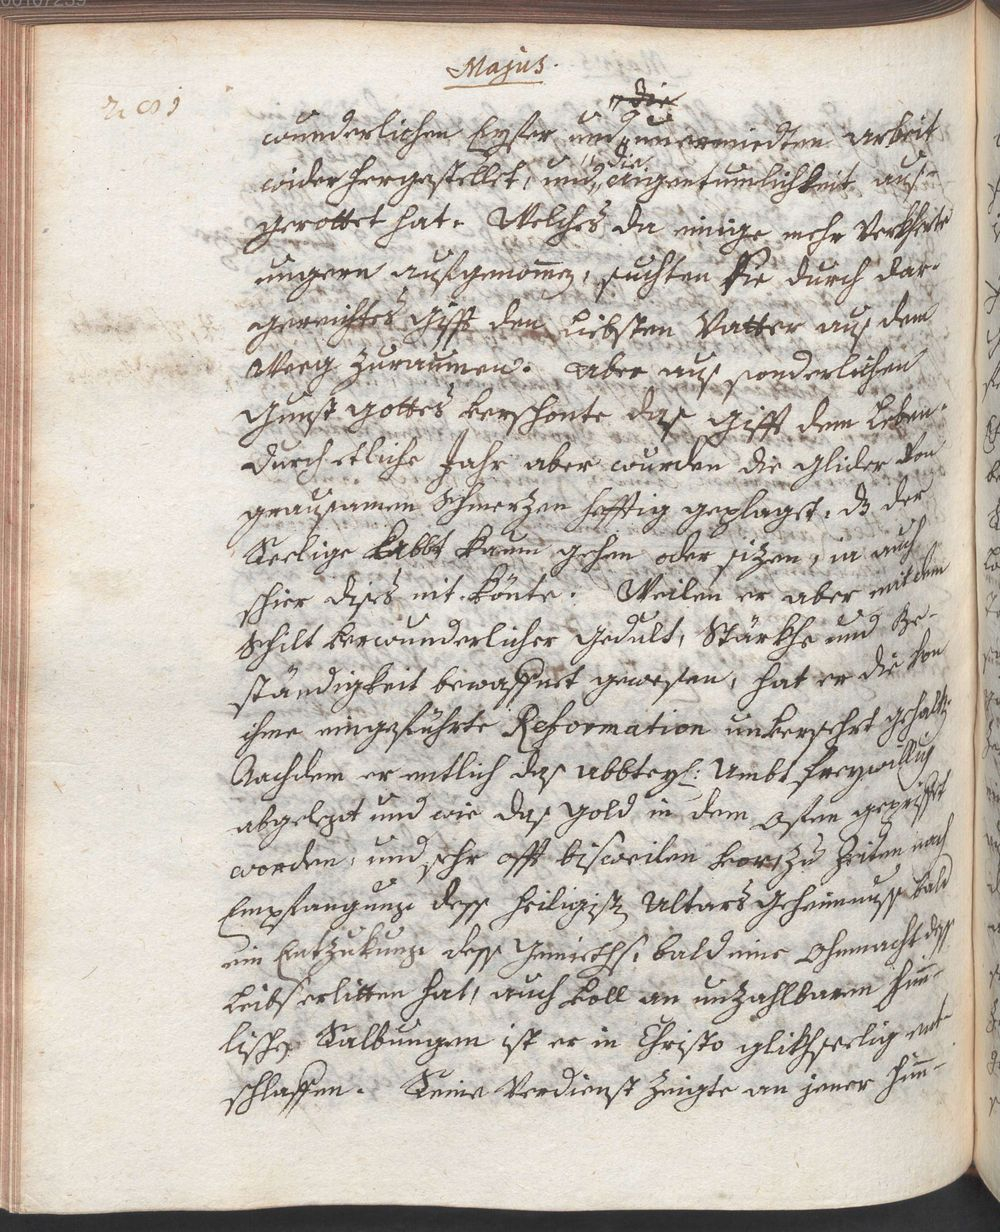 Majus.
die
wunderlichen Eyfer und unvermiedten arbeit
widerhergestellet, und die aigentumlichkeit auß-
gerottet hat. Welches da einige mehr Verkherte
ungern aufgenomen, suchten sie durch dar-
gereichtes Gifft den Liebsten Vatter aus dem
Weeg zuraumen. aber aus sonderlichen
Gunst Gottes verschonte das Gifft dem Leben.
durch etliche Jahr aber wurden die Glider von
grausamen Schmertzen hefftig geplaget, dz der
Seelige Abbt kaum gehen oder sitzen, ia auch
schier dises nit könte. Weilen er aber mit dem
Schilt verwunderlicher Gedult, Stärkhe und Be-
ständigkeit bewaffnet gewesen, hat er die von
ihme eingeführte Reformation unversehrt gehalten.
Nachdem er entlich das Abbteyl: Ambt freywillig
abgelegt und wie das Gold in dem Ofen geprüfft
worden, und sehr offt bisweilen vor zu Zeiten nach
Empfangung deß heiligisten Altars Geheimnuß bald
ein Entzukung deß Gemieths, bald eine Ohnmacht deß
Leibs erlitten hat, auch voll an unzahlbaren him-
lischen Salbungen ist er in Christo glikhseelig ent-
schlaffen. Seine Verdienst zeigte an jener him-